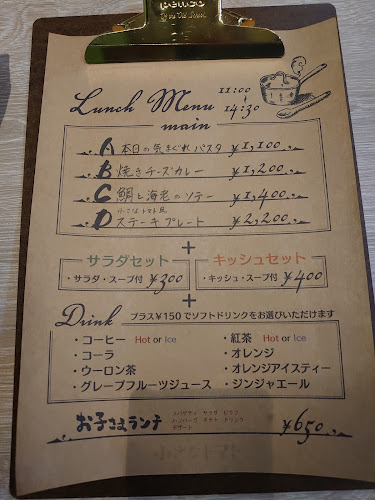 penco
Lunch Menu 11:00
14:30
main
A 本日の気まぐれパスタ ¥1,100
B 焼きチーズカレー ¥1,200
C 鯛と海老のソテー ¥1,400
D ステーキプレート ¥2,200
+
サラダセット キッシュセット
・サラダ・スープ付 ¥300 ・キッシュ・スープ付 ¥400
+
Drink プラス¥150でソフトドリンクをお選びいただけます
・コーヒー Hot or Ice ・紅茶 Hot or Ice
・コーラ ・オレンジ
・ウーロン茶 ・オレンジアイスティー
・グレープフルーツジュース ・ジンジャエール
お子さまランチ ¥650